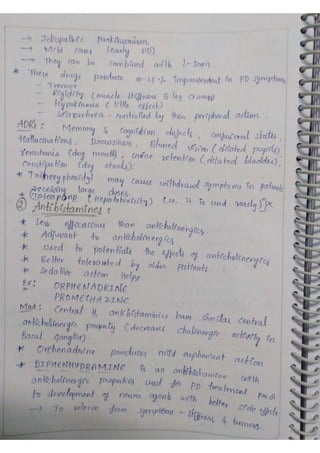 → Idiopathic Parkinsonism
→ Mild cases (early PD)
→ They can be combined with L-Dopa
* These drugs produce 10-25% improvement in PD symptoms
- Tremor
- Rigidity (muscle stiffness & leg cramps)
- Hypokinesia (little effect)
- Seborrhoea - controlled by their peripheral action.
ADRs: Memory & cognition defects, confusional states,
Hallucinations, Drowsiness, Blurred vision (dilated pupils)
Xerostomia (dry mouth), urine retention (dilated bladder),
Constipation (dry stools):
* Trihexyphenidyl may cause withdrawal symptoms in patients
receiving large doses.
(Hepatotoxicity) (so, it is used rarely)
② Antihistamines:
* Less efficacious than anticholinergics
* Adjuvant to anticholinergics
* Used to potentiate the effects of anticholinergics
* Better tolerated by older patients
* Sedative action helps
Ex: ORPHENADRINE
PROMETHAZINE
MoA: Central H1 antihistamines have similar central
anticholinergic property (decreases cholinergic activity in
Basal Ganglia).
* Orphenadrine produces mild euphoriant action
* DIPHENHYDRAMINE is an antihistamine with
anticholinergic properties used for PD treatment prior
to development of newer agents with better side effects
→ To relieve from symptoms - stiffness & tremors.